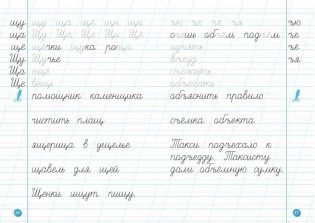 щу щу ща ще щи щи
ща Щу Ща Ще Щи Ще
щё щёчки щука роща
Щу Щучье
Ща еще
Ще вещь
помощник каменщика
чистить плащ
ящерица в ущелье
щавель для щей
Щенки ищут пищу.
26
ъю ъе ъё ъя ъю
объем подъём ъе
изъять ъё
въезд ъя
съёжить
объехать
объяснить правило
съёмка объекта
Такси подъехало к
подъезду. Таксисту
дали объёмную сумку.
27